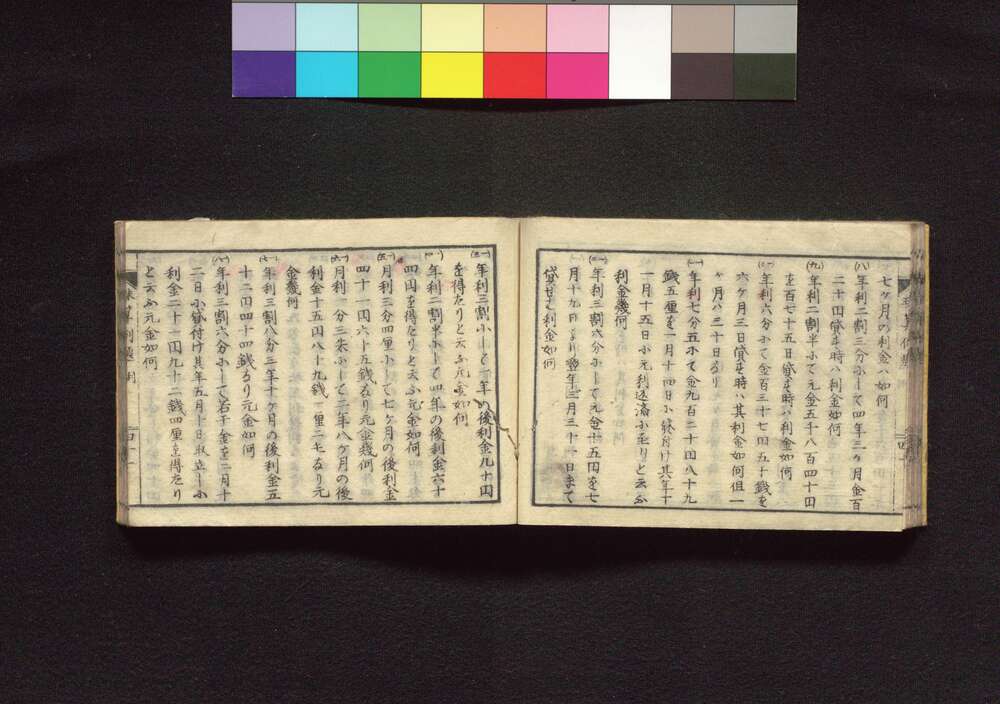 七ヶ月の利金ハ如何
(八)
年利二割三分小して四年三ヶ月金百
二十円貸す時ハ利金如何
(九)
年利二割半小て元金五千八百四十円
を百七十五日貸す時ハ利金如何
年利六分小て金百三十七円五十銭を
六ヶ月三日貸す時ハ其利金如何但一
ヶ月ハ三十日なり
年利七分五小て金九百二十円八十九
銭五厘を一月十四日小貸付け其年十
一月十五日小元利返済小至りと云ふ
利金幾何
年利三割六分小して元金十五円を七
月十九日より翌年三月三十一日まて
貸せし利金如何
年利三割小して一年の後利金九十円
を得たりと云ふ元金如何
年利二割半小して四年の後利金六十
四円を得たりと云ふ元金如何
月利三分四厘小して七ヶ月の後利金
四十一円六十五銭なり元金幾何
月利一分三朱小して二年八ヶ月の後
利金十五円八十九銭一里二毛なり元
金幾何
年利三割八分三年十ヶ月の後利金五
十二円四十四銭なり元金如何
年利三割六分小して若干金を二月十
二日小貸付け其年五月十日取立し小
利金二十一円九十二銭四厘を得たり
と云ふ元金如何